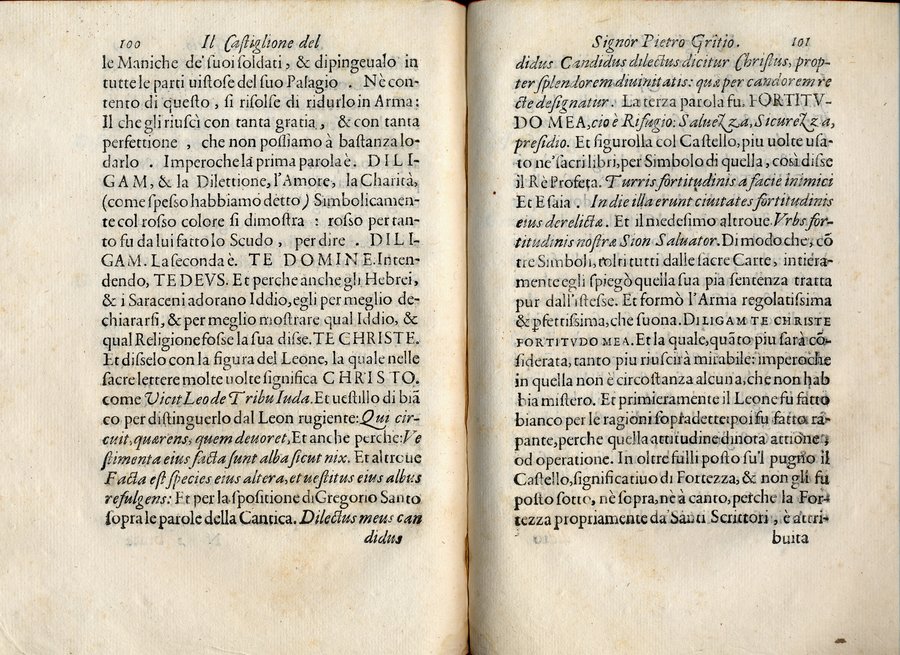 100 Il Caſtiglione del
le Maniche de' ſuoi ſoldati, & dipingeualo in
tutte le parti uiſtoſe del ſuo Palagio . Nè con-
tento di queſto , ſi riſolſe di ridurlo in Arma:
Il che gli riuſcì con tanta gratia , & con tanta
perfettione , che non poſſiamo à baſtanza lo-
darlo . Imperoche la prima parola è. DILI-
GAM, & la Dilettione, l'Amore, la Charità,
(come ſpeſſo habbiamo detto) Simbolicamen-
te col roſſo colore ſi dimoſtra : roſſo per tan-
to fu da lui fatto lo Scudo , per dire . DILI-
GAM. La ſeconda è. TE DOMINE. Inten-
dendo, TE DEVS. Et perche anche gli Hebrei,
& i Saraceni adorano Iddio, egli per meglio de-
chiararſi, & per meglio moſtrare qual Iddio, &
qual Religione foſſe la ſua diſſe. TE CHRISTE.
Et diſſelo con la figura del Leone, la quale nelle
ſacre lettere molte uolte ſignifica CHRISTO.
come Vicit Leo de Tribu Iuda. Et ueſtillo di biã
co per diſtinguerlo dal Leon rugiente: Qui cir-
cuit, quærens, quem deuoret, Et anche perche: Ve
ſtimenta eius facta ſunt alba ſicut nix. Et altroue
Facta eſt ſpecies eius altera, et ueſtitus eius albus
refulgens: Et per la ſpoſitione di Gregorio Santo
ſopra le parole della Cantica. Dilectus meus can
didus
Signor Pietro Gritio. 101
didus Candidus dilectus dicitur Chriſtus, prop-
ter ſplendorem diuinitatis: quæ per candorem re
cte deſignatur. La terza parola fu. FORTITV-
DO MEA, cio è Rifugio: Saluezza, Sicurezza,
preſidio. Et figurolla col Caſtello, piu uolte uſa-
to ne' ſacri libri, per Simbolo di quella, così diſſe
il Rè Profeta. Turris fortitudinis a facie inimici
Et Eſaia . In die illa erunt ciuitates fortitudinis
eius derelictæ. Et il medeſimo altroue. Vrbs for-
titudinis noſtræ Sion Saluator. Di modo che, cõ
tre Simboli, tolti tutti dalle ſacre Carte, intiera-
mente egli ſpiegò quella ſua pia ſentenza tratta
pur dall'iſteſſe. Et formò l'Arma regolatiſſima
& pfettiſſima, che ſuona. DILIGAM TE CHRISTE
FORTITVDO MEA. Et la quale, quãto piu ſarà cõ-
ſiderata, tanto piu riuſcirà mirabile: imperoche
in quella non è circoſtanza alcuna, che non hab
bia miſtero. Et primieramente il Leone fu fatto
bianco per le ragioni ſopradette: poi fu fatto rã-
pante, perche quella attitudine dinota attione,
od operatione. In oltre fulli poſto ſu'l pugno il
Caſtello, ſignificatiuo di Fortezza, & non gli fu
poſto ſotto, nè ſopra, nè à canto, perche la For-
tezza propriamente da' Sãti Scrittori , è attri-
buita